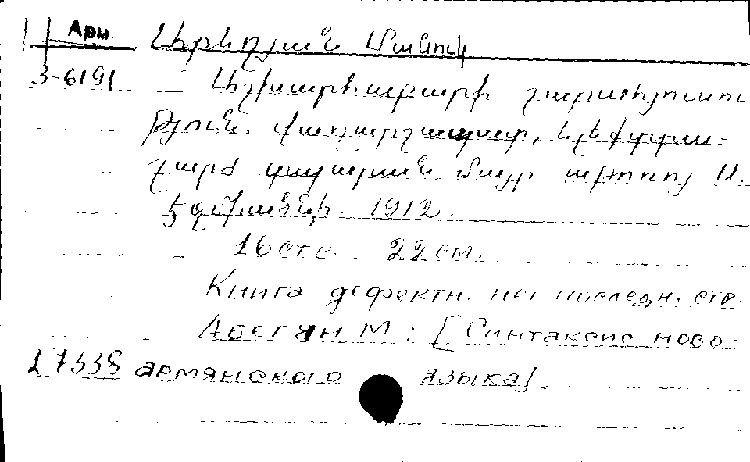 Арм Աբեղյան Մանուկ
3-6191 Աշխարհաբարի շարահյուսու
թյուն. Վաղարշապատ, էլեքտրա-
շարժ տպարան մայր աթոռոյ Ս.
Էջմիածնի 1912.
16 стр. 22 см.
Книга дефектн. нет последн. стр.
Абегян М.: [Синтаксис ново-
17338 армянского языка]